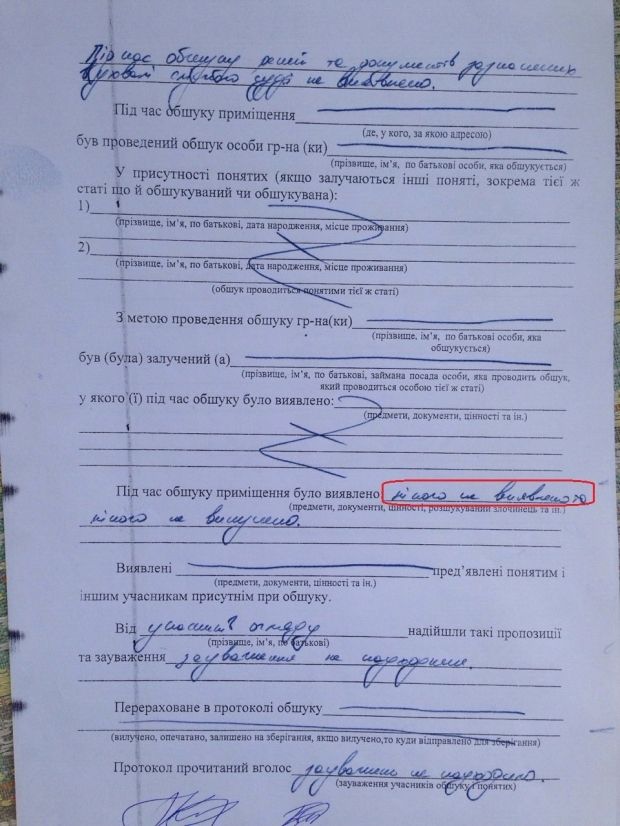 Під час обшуку речей та документів зазначених
в ухвалі слідчого судді не виявлено.
Під час обшуку приміщення
(де, у кого, за якою адресою)
був проведений обшук особи гр-на (ки)
(прізвище, ім'я, по батькові особи, яка обшукується)
У присутності понятих (якщо залучаються інші поняті, зокрема тієї ж
статі що й обшукуваний чи обшукувана):
1)
(прізвище, ім'я, по батькові, дата народження, місце проживання)
2)
(прізвище, ім'я, по батькові, дата народження, місце проживання)
(обшук проводиться понятими тієї ж статі)
З метою проведення обшуку гр-на(ки)
(прізвище, ім'я, по батькові особи, яка
обшукується)
був (була) залучений (а)
(прізвище, ім'я, по батькові, займана посада особи, яка проводить обшук,
який проводиться особою тієї ж статі)
у якого (ї) під час обшуку було виявлено:
(предмети, документи, цінності та ін.)
Під час обшуку приміщення було виявлено нічого не виявлено та
(предмети, документи, цінності, розшукуваний злочинець та ін.)
нічого не вилучено.
Виявлені пред'явлені понятим і
(предмети, документи, цінності та ін.)
іншим учасникам присутнім при обшуку.
Від учасників огляду надійшли такі пропозиції
(прізвище, ім'я, по батькові)
та зауваження зауваження не надходили.
Перераховане в протоколі обшуку
(вилучено, опечатано, залишено на зберігання, якщо вилучено,то куди відправлено для зберігання)
Протокол прочитаний вголос зауважень не надходило.
(зауваження учасників обшуку і понятих)